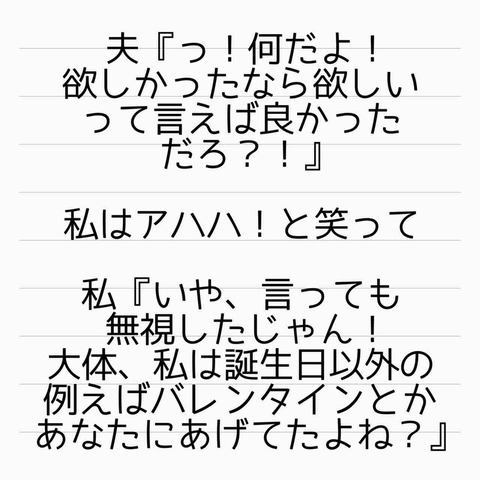 夫『っ！何だよ！
欲しかったなら欲しい
って言えば良かった
だろ？！』
私はアハハ！と笑って
私『いや、言っても
無視したじゃん！
大体、私は誕生日以外の
例えばバレンタインとか
あなたにあげてたよね？』